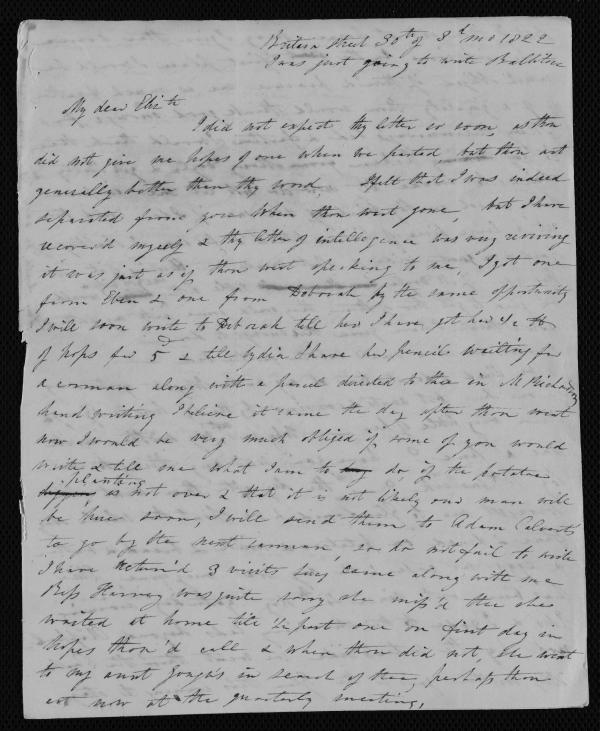 Britain Street 30th of 3d mo 1822
I was just going to write Ballitore
My dear Elizth
I did not expect thy letter so soon, as thou
did not give me hopes of one when we parted, but thou art
generally better than thy word. I felt that I was indeed
separated from you when thou went gone, but I have
recover'd myself & thy letter of intellegence was very reviving
it was just as if thou wert speaking to me, I got one
from Eben & one from Deborah by the same opportunity
I will soon write to Deborah tell her I have got her 1/2 lb
of hops for 5d & tell Lydia I have her pencils waiting for
a carman along with a parcel directed to thee in M Richardson
hand writing I believe it came the day after thou went
now I would be very much obliged if some of you would
write & tell me what I am to do, if the potatoe
planting is not over & that it is not likely our man will
be here soon, I will send them to Adam Calverts
to go by the next carman, so do not fail to write
I have return'd 3 visits Lucy came along with me
Bess Harvey was quite sorry she miss'd thee she
waited at home till 1/2 past one on first day in
hopes thou'd call & when thou did not, she went
to my aunt in search of thee, perhaps thou
art now at the quarterly meeting,